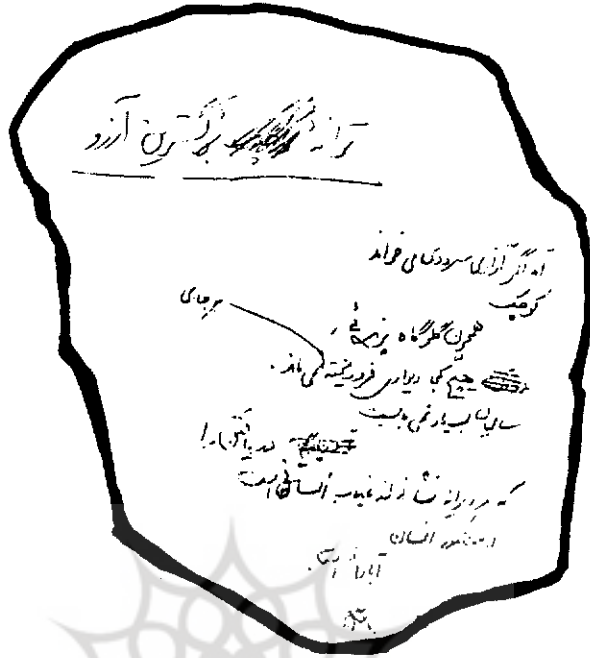 ترانهٔ بزرگترین آرزو
آه اگر آزادی سرودی می خواند
کوچک
همچون گلوگاه پرنده ئی ،
هیچ کجا دیواری فروریخته نمی ماند .
بر جای
سالیان بسیار نمی بایست
دریافتن را
که هر ویرانه نشانی از غیاب انسانی است
حضور انسان
آبادانی است.